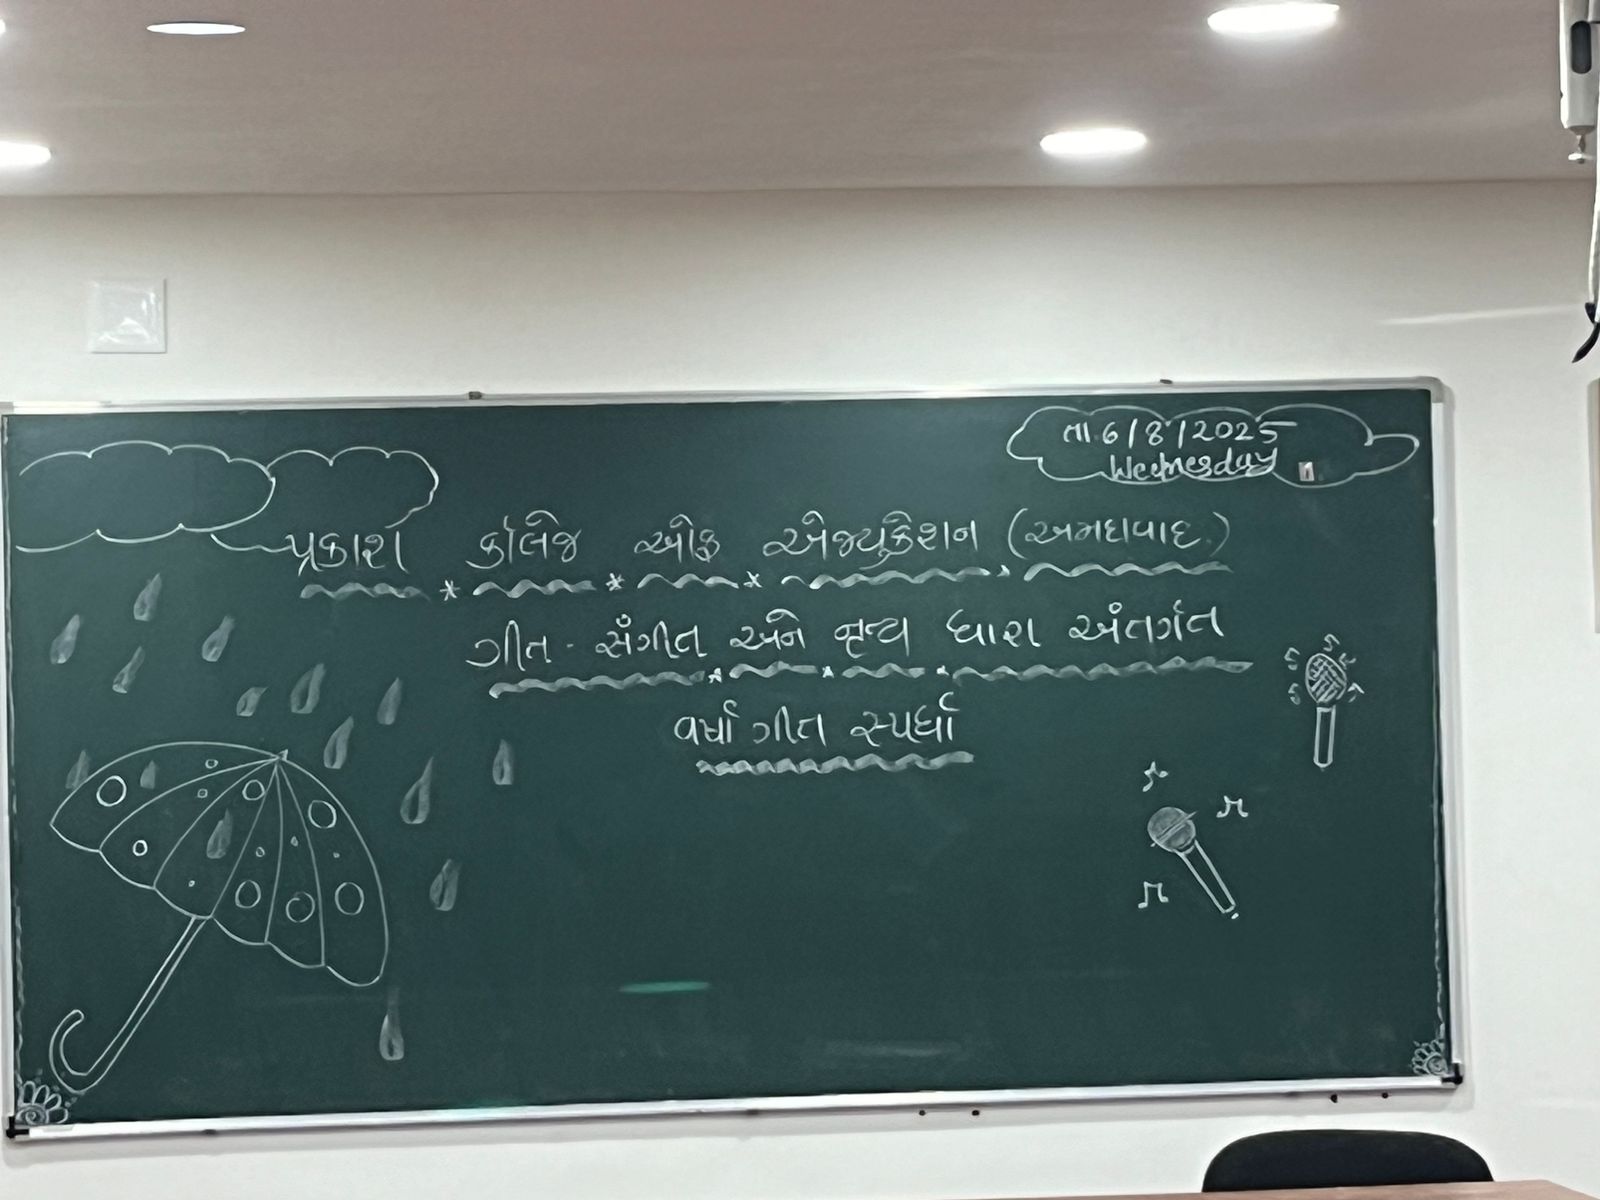 તા. 6/8/2025
Wednesday
પ્રકાશ કૉલેજ ઓફ એજ્યુકેશન (અમદાવાદ.)
ગીત - સંગીત અને નૃત્ય ધારા અંતર્ગત
વર્ષા ગીત સ્પર્ધા